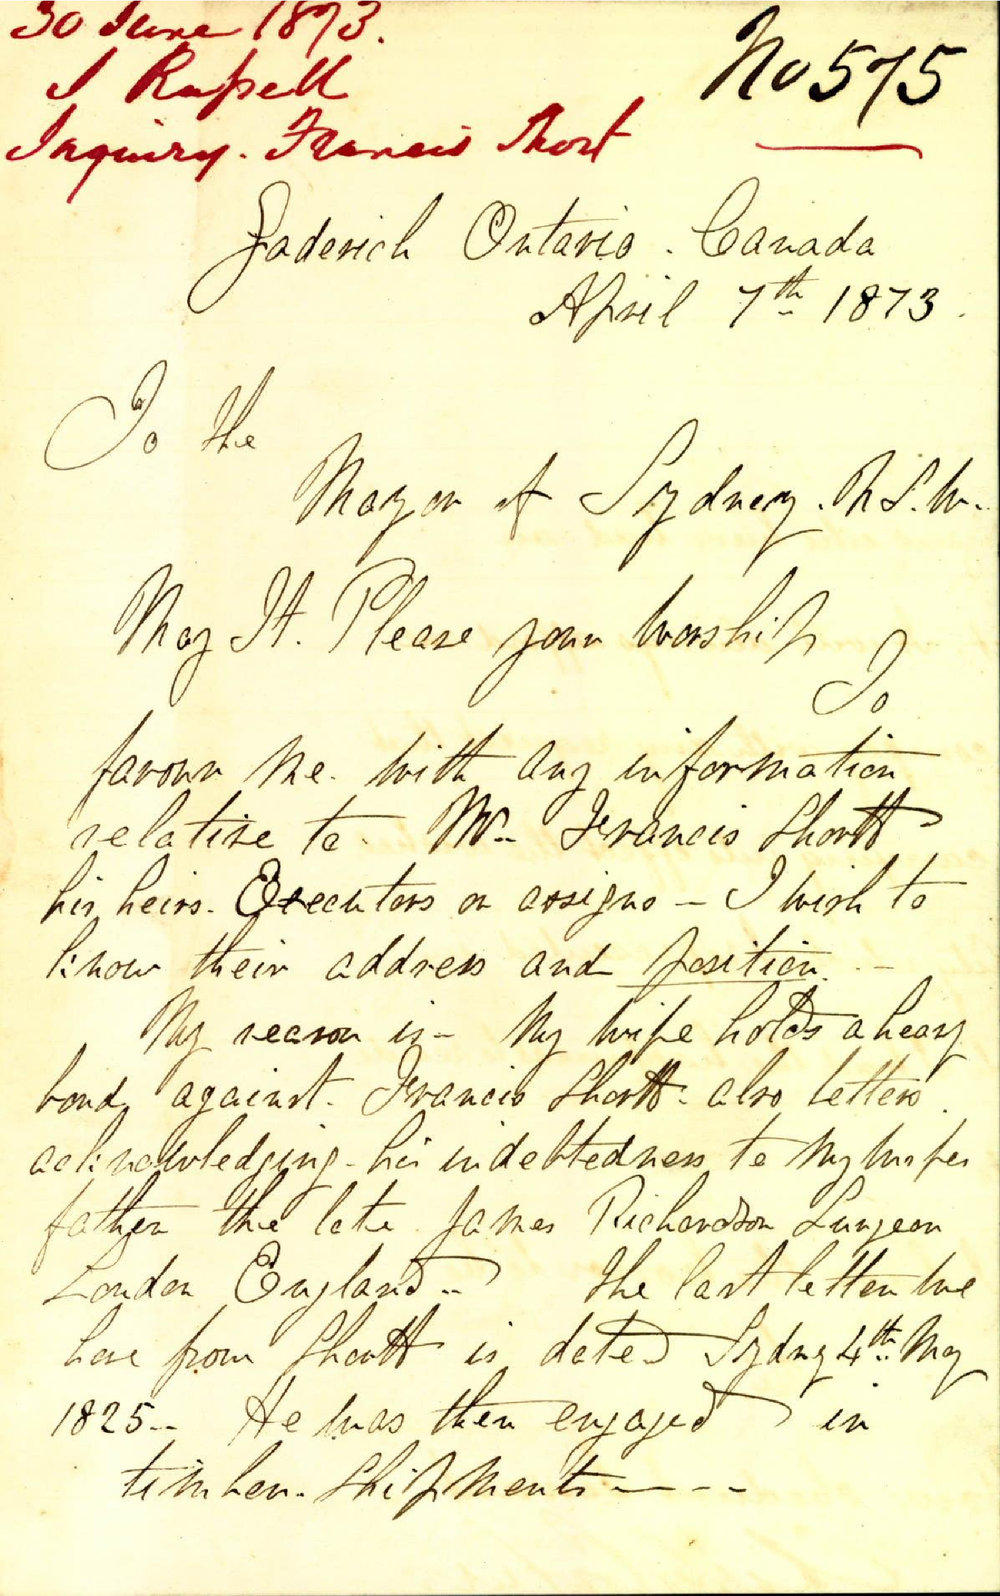 30 June 1873.
J Russell
Inquiry. Francis Short
No 575
Goderich Ontario. Canada
April 7th 1873.
To the
Mayor of Sydney. N.S.W.
May It. Please your Worship
To
favour me. with any information
relative to. Mr. Francis Shortt
his heirs. Executors or assigns - I wish to
know their address and position. -
My reason is - My wife holds a heavy
bond against. Francis Shortt. also letters.
acknowledging - his indebtedness to My Wifes
father the late James Richardson Surgeon
London England - The last letter we
have from Shortt is dated Sydney 4th May
1825 - He was then engaged in
timber. Shipments - - -